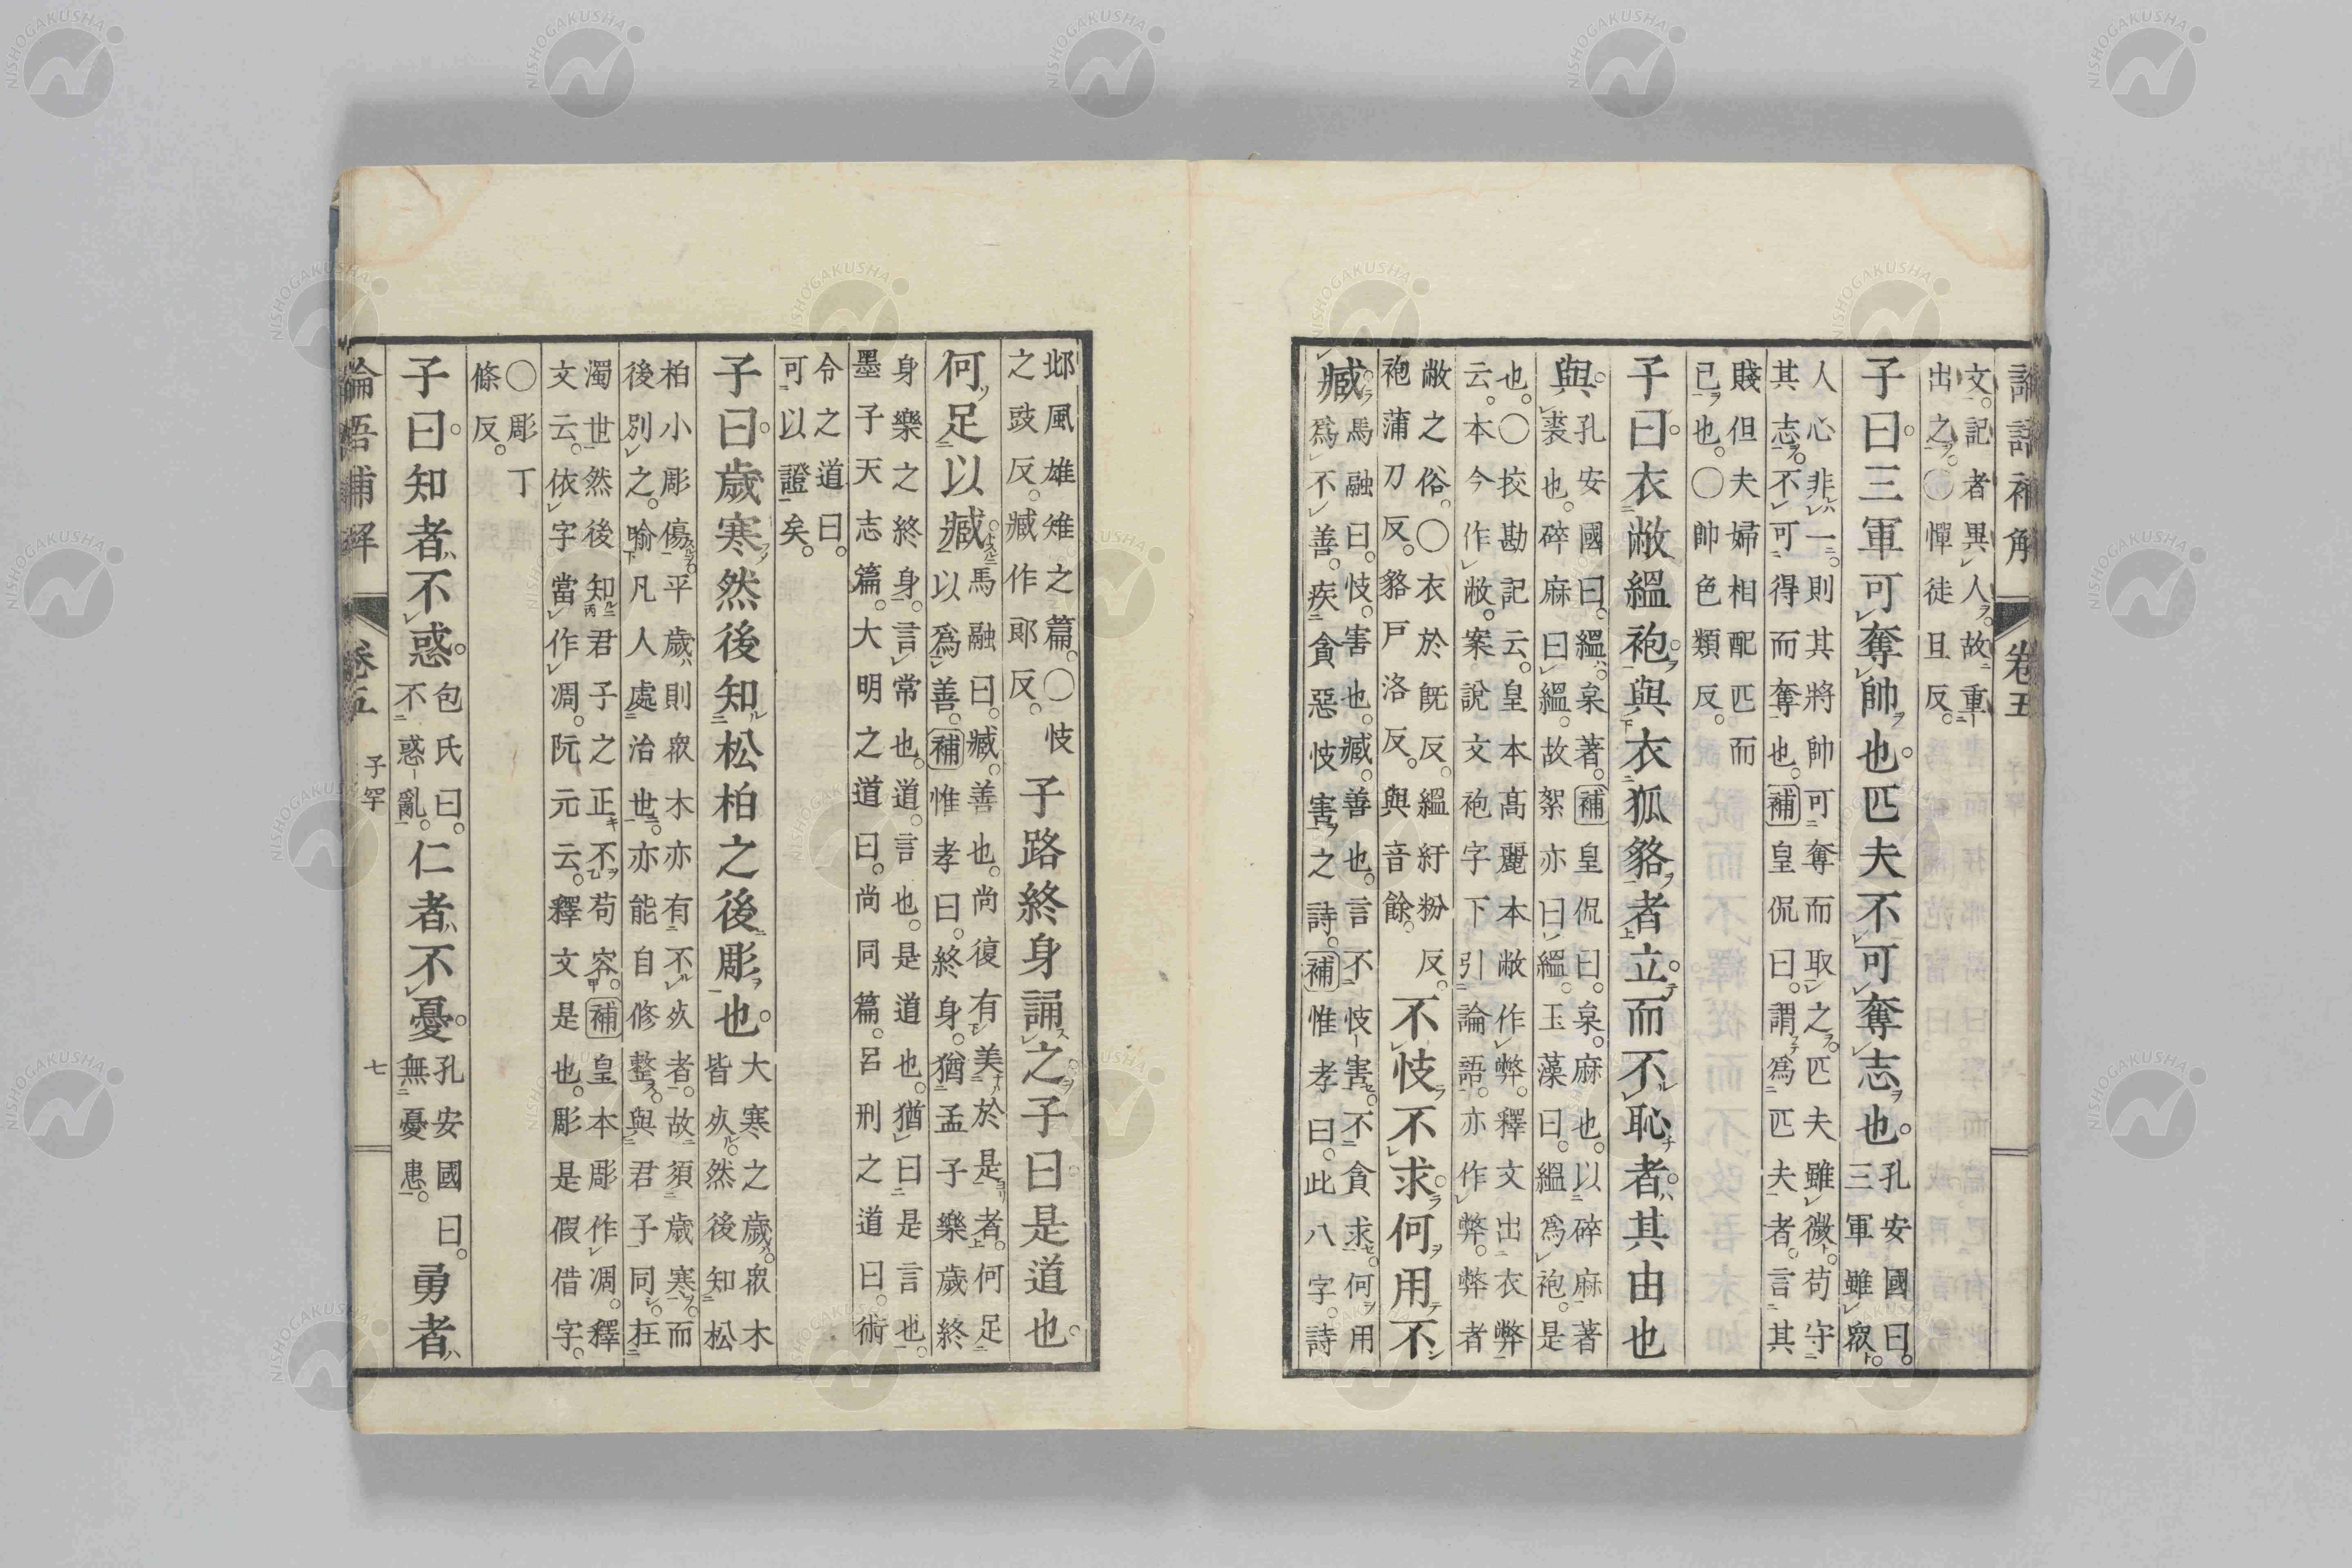 論語補解
卷五
文。記者異人。故重
出之。〇憚徒旦反。
子曰。三軍可奪帥也。匹夫不可奪志也。
孔安國曰。
三軍雖衆。
人心非一。則其將帥可奪而取之。匹夫雖微。苟守
其志。不可得而奪也。補皇侃曰。謂爲匹夫者。言其
賤但夫婦相配匹而
已也。〇帥色類反。
子曰。衣敝縕袍。與衣狐貉者立。而不恥者。其由也
與。
孔安國曰。縕。枲著。補皇侃曰。枲。麻也。以碎麻著
裘也。碎麻曰縕。故絮亦曰縕。玉藻曰。縕爲袍。是
也。〇挍勘記云。皇本高麗本敝作弊。釋文出衣弊
云。本今作敝。案說文袍字下引論語。亦作弊。弊者
敝之俗。〇衣於旣反。縕紆粉反。
袍蒲刀反。貉戶洛反。與音餘。
不忮不求。何用不
臧。
馬融曰。忮。害也。臧。善也。言不忮害。不貪求。何用
爲不善。疾貪惡忮害之詩。補惟孝曰。此八字。詩
邶風雄雉之篇。〇忮
之豉反。臧作郞反。
子路終身誦之。子曰。是道也。
何足以臧。
馬融曰。臧。善也。尚復有美於是者。何足
以爲善。補惟孝曰。終身。猶孟子樂歲終
身樂之終身。言常也。道。言也。是道也。猶曰是言也。
墨子天志篇。大明之道曰。尚同篇。呂刑之道曰。術
令之道曰。
可以證矣。
子曰。歲寒然後知松柏之後彫也。
大寒之歲。衆木
皆死。然後知松
柏小彫傷。平歲則衆木亦有不死者。故須歲寒。而
後別之。喻凡人處治世。亦能自修整。與君子同。在
濁世。然後知君子之正不苟容。補皇本彫作凋。釋
文云。依字當作凋。阮元云。釋文是也。彫是假借字。
〇彫丁
條反。
子曰。知者不惑。
包氏曰。
不惑亂。
仁者不憂。
孔安國曰。
無憂患。
勇者
論語補解
卷五
子罕
七